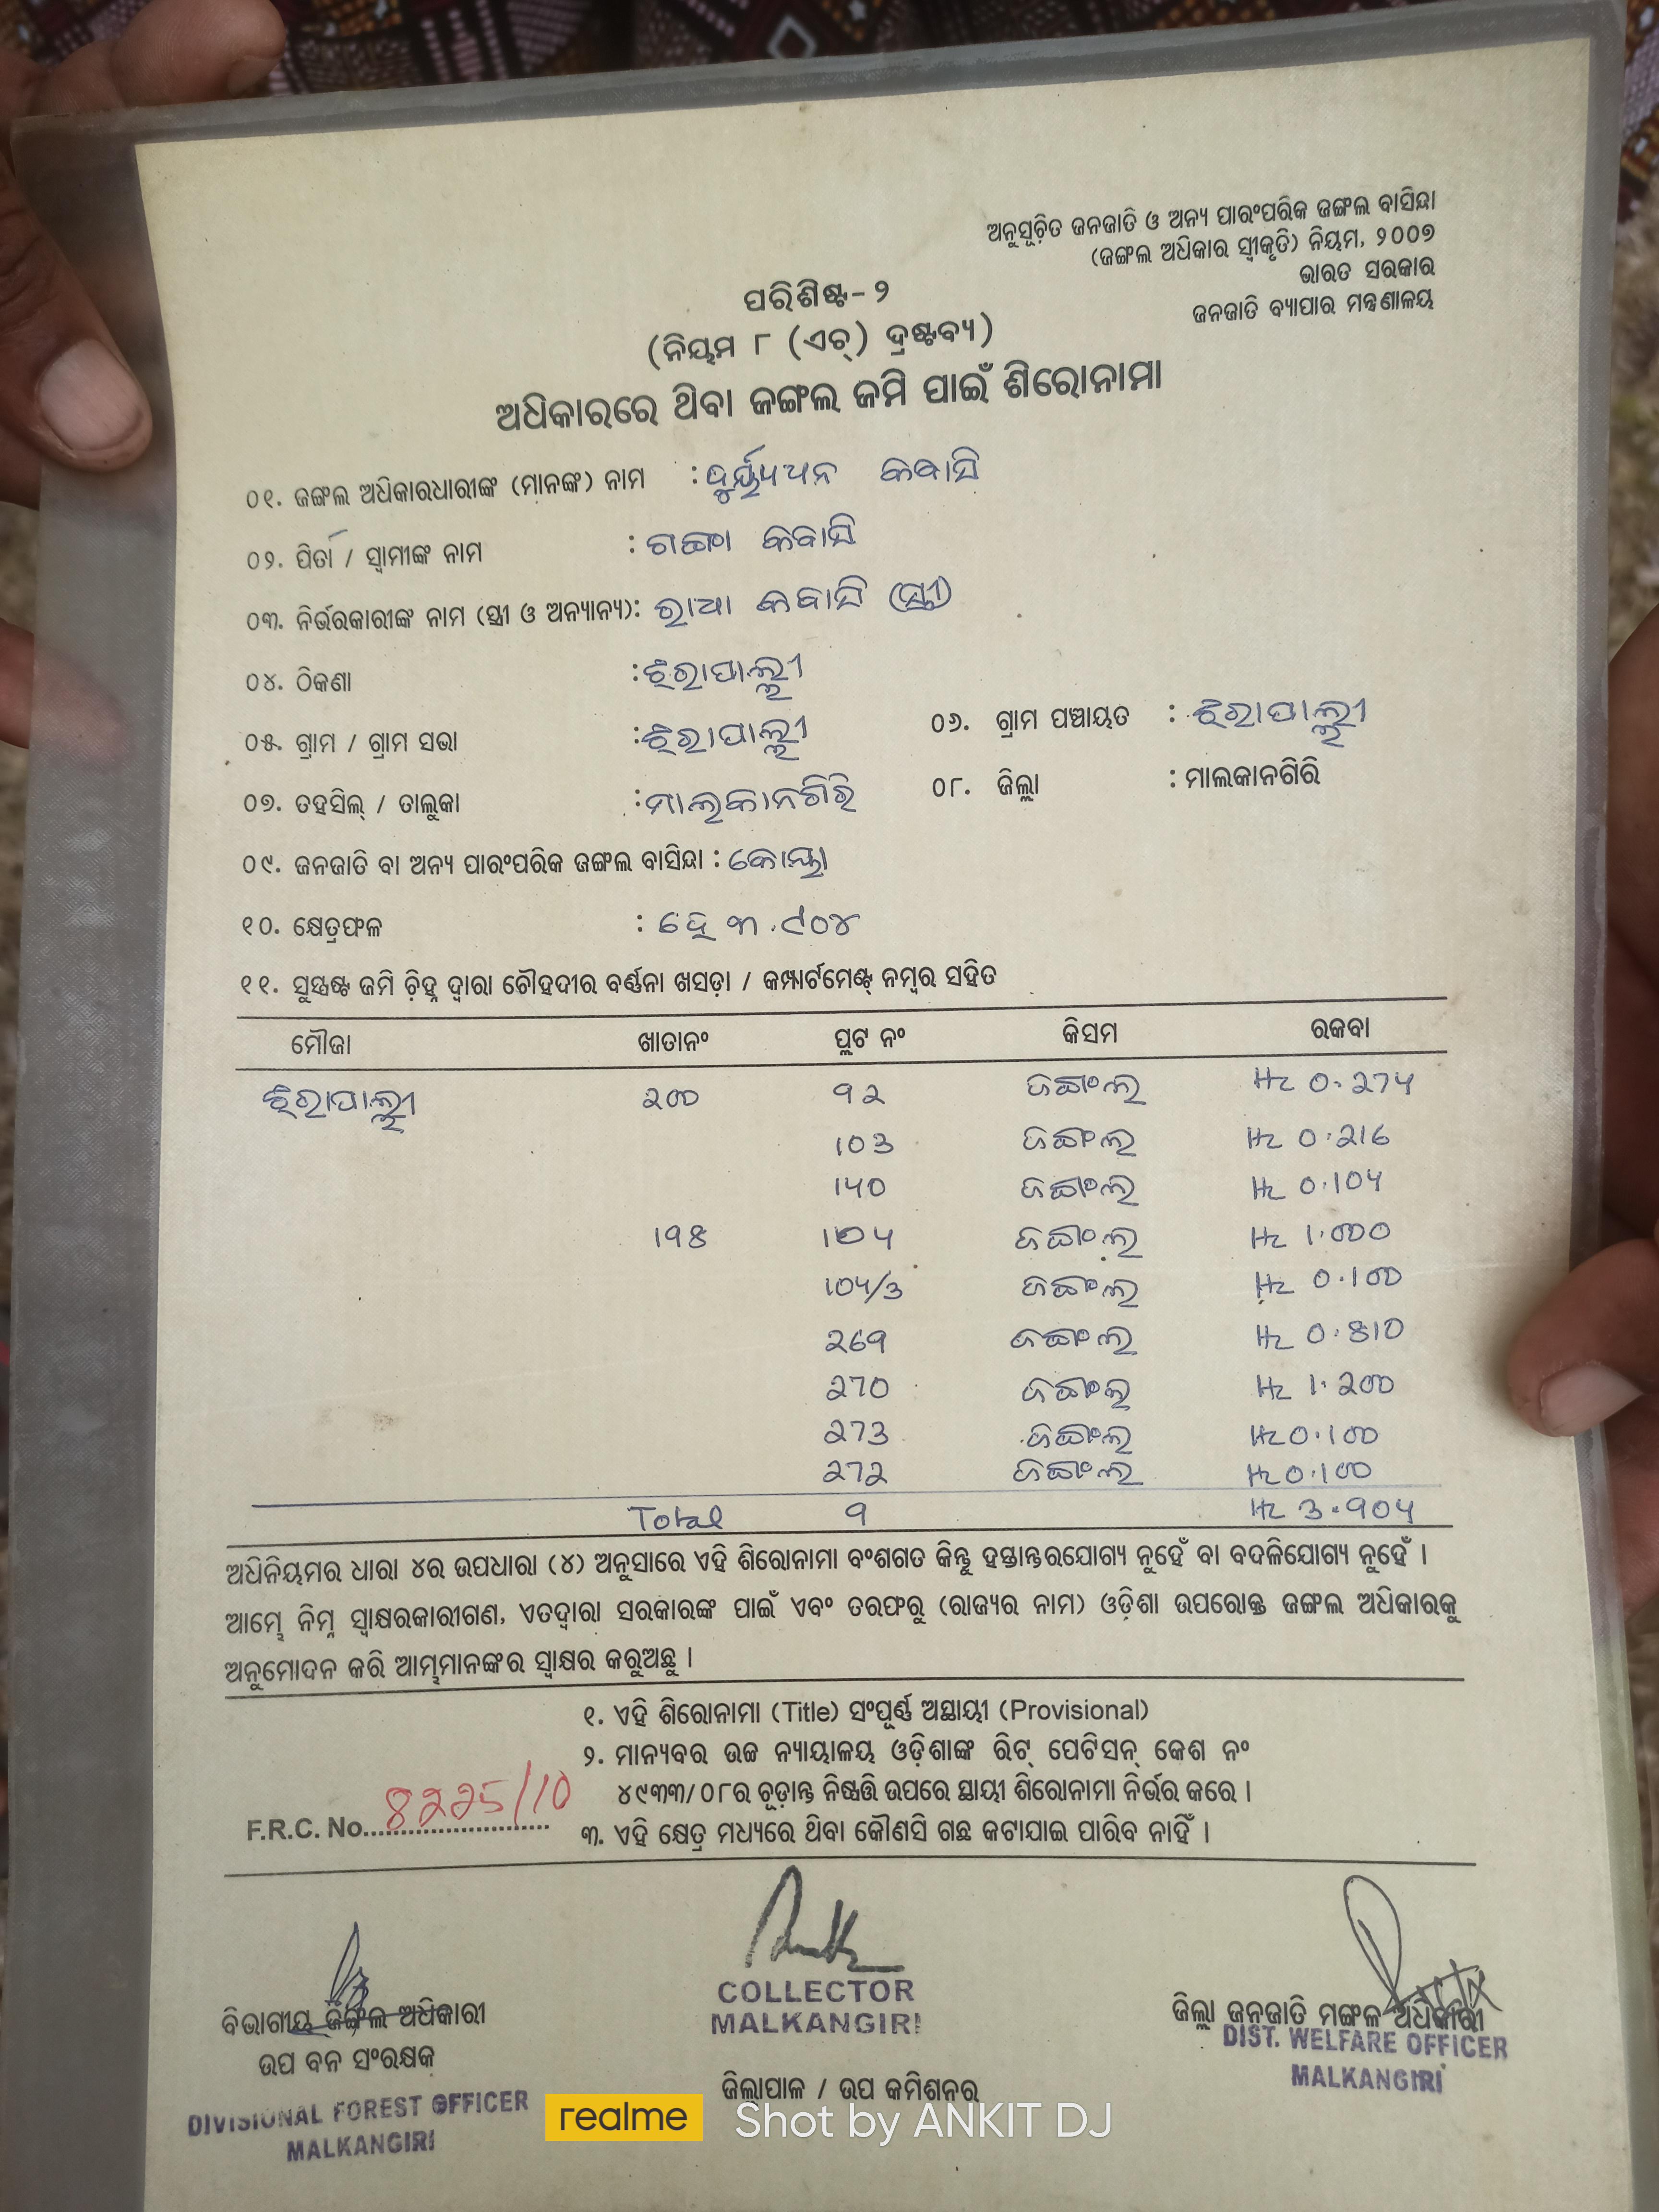 ଅନୁସୂଚିତ ଜନଜାତି ଓ ଅନ୍ୟ ପାରଂପରିକ ଜଙ୍ଗଲ ବାସିନ୍ଦା
(ଜଙ୍ଗଲ ଅଧିକାର ସ୍ୱୀକୃତି) ନିୟମ, ୨୦୦୭
ଭାରତ ସରକାର
ଜନଜାତି ବ୍ୟାପାର ମନ୍ତ୍ରଣାଳୟ
ପରିଶିଷ୍ଟ-୨
(ନିୟମ ୮ (ଏଚ୍) ଦ୍ରଷ୍ଟବ୍ୟ)
ଅଧିକାରରେ ଥିବା ଜଙ୍ଗଲ ଜମି ପାଇଁ ଶିରୋନାମା
୦୧. ଜଙ୍ଗଲ ଅଧିକାରଧାରୀଙ୍କ (ମାନଙ୍କ) ନାମ : କବାସି
୦୨. ପିତା / ସ୍ୱାମୀଙ୍କ ନାମ : ଗଙ୍ଗା କବାସି
୦୩. ନିର୍ଭରକାରୀଙ୍କ ନାମ (ସ୍ତ୍ରୀ ଓ ଅନ୍ୟାନ୍ୟ): କବାସି (ସ୍ତ୍ରୀ)
୦୪. ଠିକଣା : ଝିରାପାଲ୍ଲୀ
୦୫. ଗ୍ରାମ / ଗ୍ରାମ ସଭା : ଝିରାପାଲ୍ଲୀ ୦୬. ଗ୍ରାମ ପଞ୍ଚାୟତ : ଝିରାପାଲ୍ଲୀ
୦୭. ତହସିଲ୍ / ତାଲୁକା : ମାଲକାନଗିରି ୦୮. ଜିଲ୍ଲା : ମାଲକାନଗିରି
୦୯. ଜନଜାତି ବା ଅନ୍ୟ ପାରଂପରିକ ଜଙ୍ଗଲ ବାସିନ୍ଦା : କୋୟା
୧୦. କ୍ଷେତ୍ରଫଳ : ହେ ୩.୯୦୪
୧୧. ସୁସ୍ପଷ୍ଟ ଜମି ଚିହ୍ନ ଦ୍ୱାରା ଚୌହଦୀର ବର୍ଣ୍ଣନା ଖସଡ଼ା / କମ୍ପାର୍ଟମେଣ୍ଟ୍ ନମ୍ବର ସହିତ
ମୌଜା ଖାତାନଂ ପ୍ଲଟ ନଂ କିସମ ରକବା
ଝିରାପାଲ୍ଲୀ 200 92 ଜଙ୍ଗଲ Hc 0.274
103 ଜଙ୍ଗଲ Hc 0.216
140 ଜଙ୍ଗଲ Hc 0.104
198 104 ଜଙ୍ଗଲ Hc 1.000
104/3 ଜଙ୍ଗଲ Hc 0.100
269 ଜଙ୍ଗଲ Hc 0.810
270 ଜଙ୍ଗଲ Hc 1.200
273 ଜଙ୍ଗଲ Hc 0.100
272 ଜଙ୍ଗଲ Hc 0.100
Total 9 Hc 3.904
ଅଧିନିୟମର ଧାରା ୪ର ଉପଧାରା (୪) ଅନୁସାରେ ଏହି ଶିରୋନାମା ବଂଶଗତ କିନ୍ତୁ ହସ୍ତାନ୍ତରଯୋଗ୍ୟ ନୁହେଁ ବା ବଦଳିଯୋଗ୍ୟ ନୁହେଁ ।
ଆମ୍ଭେ ନିମ୍ନ ସ୍ୱାକ୍ଷରକାରୀଗଣ, ଏତଦ୍ୱାରା ସରକାରଙ୍କ ପାଇଁ ଏବଂ ତରଫରୁ (ରାଜ୍ୟର ନାମ) ଓଡ଼ିଶା ଉପରୋକ୍ତ ଜଙ୍ଗଲ ଅଧିକାରକୁ
ଅନୁମୋଦନ କରି ଆମ୍ଭମାନଙ୍କର ସ୍ୱାକ୍ଷର କରୁଅଛୁ ।
୧. ଏହି ଶିରୋନାମା (Title) ସଂପୂର୍ଣ୍ଣ ଅସ୍ଥାୟୀ (Provisional)
୨. ମାନ୍ୟବର ଉଚ୍ଚ ନ୍ୟାୟାଳୟ ଓଡ଼ିଶାଙ୍କ ରିଟ୍ ପେଟିସନ୍ କେଶ ନଂ
୪୯୩୩/୦୮ର ଚୂଡ଼ାନ୍ତ ନିଷ୍ପତ୍ତି ଉପରେ ସ୍ଥାୟୀ ଶିରୋନାମା ନିର୍ଭର କରେ ।
F.R.C. No. 8225/10
୩. ଏହି କ୍ଷେତ୍ର ମଧ୍ୟରେ ଥିବା କୌଣସି ଗଛ କଟାଯାଇ ପାରିବ ନାହିଁ ।
ବିଭାଗୀୟ ଜଙ୍ଗଲ ଅଧିକାରୀ
ଉପ ବନ ସଂରକ୍ଷକ
DIVISIONAL FOREST OFFICER
MALKANGIRI
COLLECTOR
MALKANGIRI
ଜିଲ୍ଲାପାଳ / ଉପ କମିଶନର
ଜିଲ୍ଲା ଜନଜାତି ମଙ୍ଗଳ ଅଧିକାରୀ
DIST. WELFARE OFFICER
MALKANGIRI
realme Shot by ANKIT DJ